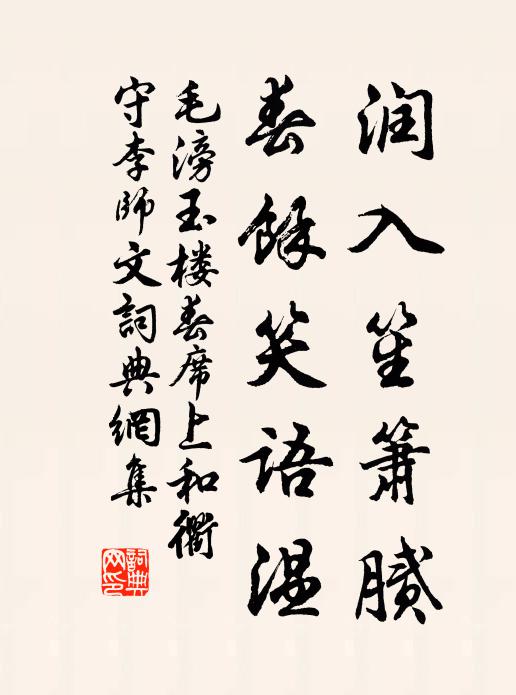 润入笙箫腻
春馀笑语温
毛滂玉楼春席上和衢
守李师文词典網集
詞典
网印